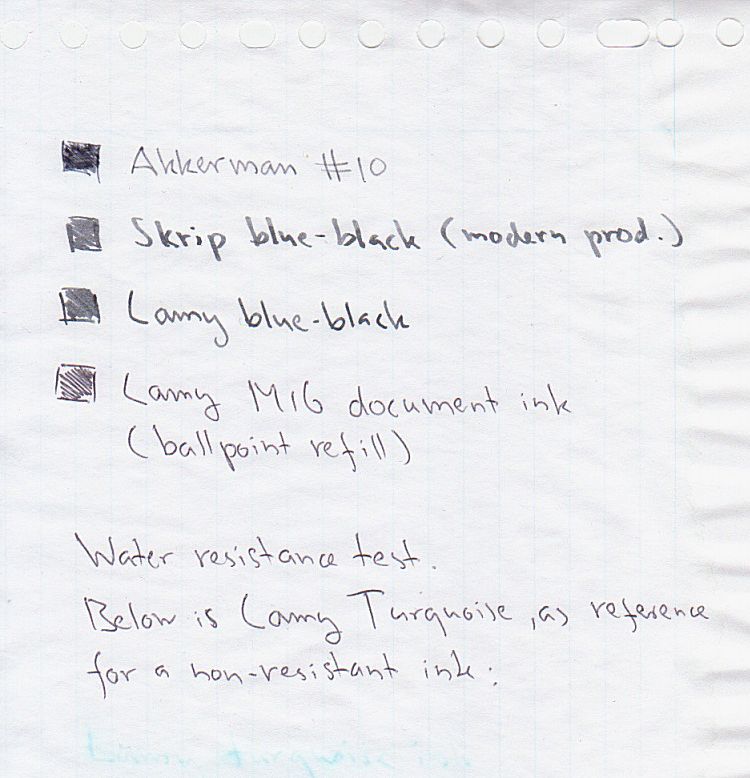 Akkerman #10
Skrip blue-black (modern prod.)
Lamy blue-black
Lamy M16 document ink
(ballpoint refill)
Water resistance test.
Below is Lamy Turquoise, as reference
for a non-resistant ink: